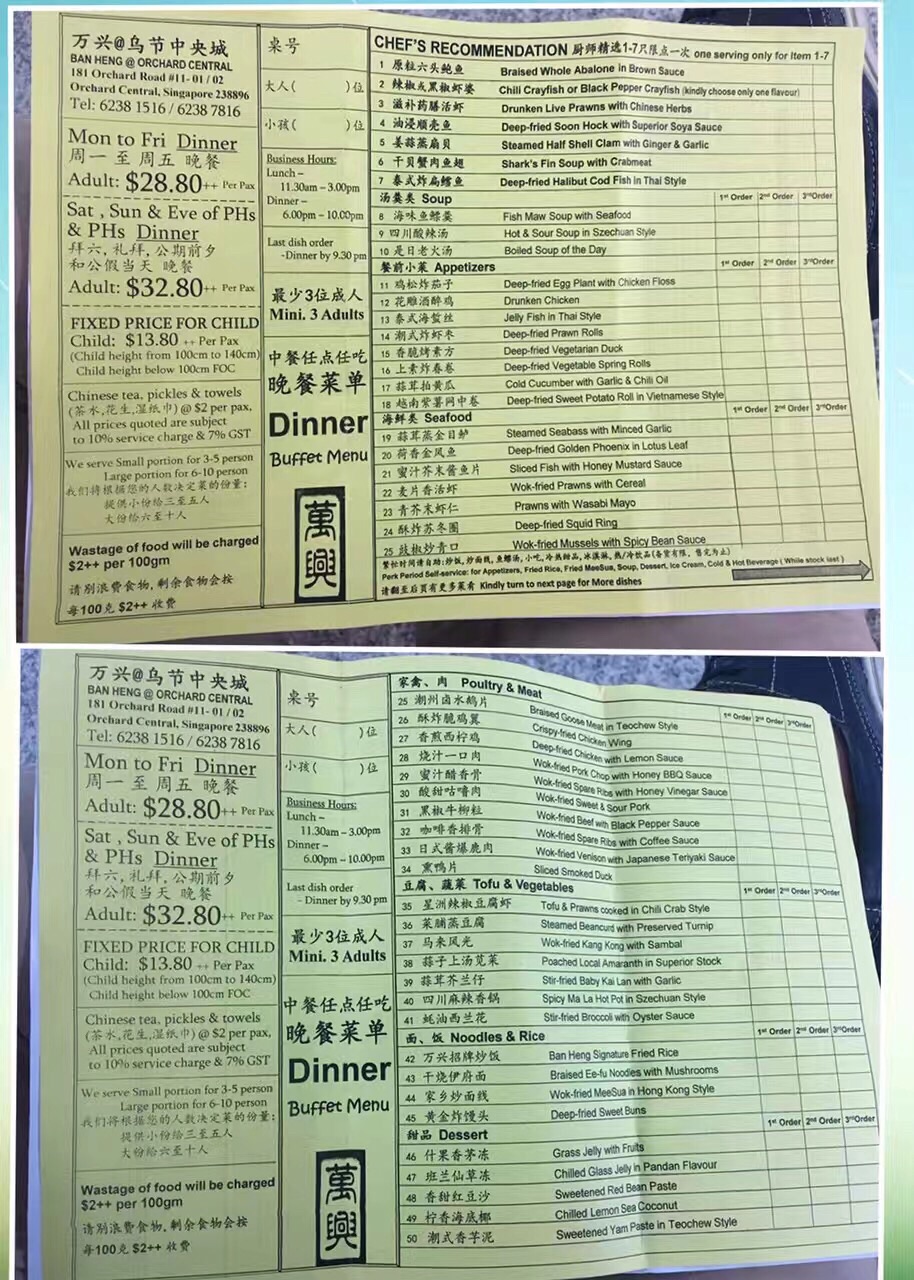 万兴@乌节中央城
BAN HENG @ ORCHARD CENTRAL
181 Orchard Road #11- 01 / 02
Orchard Central, Singapore 238896
Tel: 6238 1516 / 6238 7816
Mon to Fri Dinner
周一 至 周五 晚餐
Adult: $28.80++ Per Pax
Sat , Sun & Eve of PHs
& PHs Dinner
拜六, 礼拜, 公期前夕
和公假当天 晚餐
Adult: $32.80++ Per Pax
FIXED PRICE FOR CHILD
Child: $13.80 ++ Per Pax
(Child height from 100cm to 140cm)
Child height below 100cm FOC
Chinese tea, pickles & towels
(茶水,花生,湿纸巾) @ $2 per pax,
All prices quoted are subject
to 10% service charge & 7% GST
We serve Small portion for 3-5 person
Large portion for 6-10 person
我们将根据您的人数决定菜的份量:
提供小份给三至五人
大份给六至十人
Wastage of food will be charged
$2++ per 100gm
请别浪费食物, 剩余食物会按
每100克 $2++ 收费
桌号
大人( )位
小孩( )位
Business Hours:
Lunch –
11.30am – 3.00pm
Dinner –
6.00pm – 10.00pm
Last dish order
-Dinner by 9.30 pm
最少3位成人
Mini. 3 Adults
中餐任点任吃
晚餐菜单
Dinner
Buffet Menu
萬興
CHEF'S RECOMMENDATION 厨师精选1-7只限点一次 one serving only for Item 1-7
1 原粒六头鲍鱼 Braised Whole Abalone in Brown Sauce
2 辣椒或黑椒虾婆 Chili Crayfish or Black Pepper Crayfish (kindly choose only one flavour)
3 滋补药膳活虾 Drunken Live Prawns with Chinese Herbs
4 油浸顺壳鱼 Deep-fried Soon Hock with Superior Soya Sauce
5 姜蒜蒸扇贝 Steamed Half Shell Clam with Ginger & Garlic
6 干贝蟹肉鱼翅 Shark's Fin Soup with Crabmeat
7 泰式炸扁鳕鱼 Deep-fried Halibut Cod Fish in Thai Style
汤羹类 Soup 1st Order 2nd Order 3rdOrder
8 海味鱼鳔羹 Fish Maw Soup with Seafood
9 四川酸辣汤 Hot & Sour Soup in Szechuan Style
10 是日老火汤 Boiled Soup of the Day
餐前小菜 Appetizers 1st Order 2nd Order 3rdOrder
11 鸡松炸茄子 Deep-fried Egg Plant with Chicken Floss
12 花雕酒醉鸡 Drunken Chicken
13 泰式海蜇丝 Jelly Fish in Thai Style
14 潮式炸虾枣 Deep-fried Prawn Rolls
15 香脆烤素方 Deep-fried Vegetarian Duck
16 上素炸春卷 Deep-fried Vegetable Spring Rolls
17 蒜茸拍黄瓜 Cold Cucumber with Garlic & Chili Oil
18 越南紫薯网中卷 Deep-fried Sweet Potato Roll in Vietnamese Style
海鲜类 Seafood 1st Order 2nd Order 3rdOrder
19 蒜茸蒸金目鲈 Steamed Seabass with Minced Garlic
20 荷香金凤鱼 Deep-fried Golden Phoenix in Lotus Leaf
21 蜜汁芥末酱鱼片 Sliced Fish with Honey Mustard Sauce
22 麦片香活虾 Wok-fried Prawns with Cereal
23 青芥末虾仁 Prawns with Wasabi Mayo
24 酥炸苏冬圈 Deep-fried Squid Ring
25 豉椒炒青口 Wok-fried Mussels with Spicy Bean Sauce
繁忙时间请自助:炒饭, 炒面线, 鱼鳔汤, 小吃, 冷热甜品, 冰淇淋, 热/冷饮品(备货有限, 售完为止)
Perk Period Self-service: for Appetizers, Fried Rice, Fried MeeSua, Soup, Dessert, Ice Cream, Cold & Hot Beverage ( While stock last )
请翻至后页有更多菜肴 Kindly turn to next page for More dishes
万兴@乌节中央城
BAN HENG @ ORCHARD CENTRAL
181 Orchard Road #11- 01 / 02
Orchard Central, Singapore 238896
Tel: 6238 1516 / 6238 7816
Mon to Fri Dinner
周一 至 周五 晚餐
Adult: $28.80++ Per Pax
Sat , Sun & Eve of PHs
& PHs Dinner
拜六, 礼拜, 公期前夕
和公假当天 晚餐
Adult: $32.80++ Per Pax
FIXED PRICE FOR CHILD
Child: $13.80 ++ Per Pax
(Child height from 100cm to 140cm)
Child height below 100cm FOC
Chinese tea, pickles & towels
(茶水,花生,湿纸巾) @ $2 per pax,
All prices quoted are subject
to 10% service charge & 7% GST
We serve Small portion for 3-5 person
Large portion for 6-10 person
我们将根据您的人数决定菜的份量:
提供小份给三至五人
大份给六至十人
Wastage of food will be charged
$2++ per 100gm
请别浪费食物, 剩余食物会按
每100克 $2++ 收费
桌号
大人( )位
小孩( )位
Business Hours:
Lunch –
11.30am – 3.00pm
Dinner –
6.00pm – 10.00pm
Last dish order
- Dinner by 9.30 pm
最少3位成人
Mini. 3 Adults
中餐任点任吃
晚餐菜单
Dinner
Buffet Menu
萬興
家禽、肉 Poultry & Meat 1st Order 2nd Order 3rdOrder
25 潮州卤水鹅片 Braised Goose Meat in Teochew Style
26 酥炸脆鸡翼 Crispy-fried Chicken Wing
27 香煎西柠鸡 Deep-fried Chicken with Lemon Sauce
28 烧汁一口肉 Wok-fried Pork Chop with Honey BBQ Sauce
29 蜜汁醋香骨 Wok-fried Spare Ribs with Honey Vinegar Sauce
30 酸甜咕噜肉 Wok-fried Sweet & Sour Pork
31 黑椒牛柳粒 Wok-fried Beef with Black Pepper Sauce
32 咖啡香排骨 Wok-fried Spare Ribs with Coffee Sauce
33 日式酱爆鹿肉 Wok-fried Venison with Japanese Teriyaki Sauce
34 熏鸭片 Sliced Smoked Duck
豆腐、蔬菜 Tofu & Vegetables 1st Order 2nd Order 3rdOrder
35 星洲辣椒豆腐虾 Tofu & Prawns cooked in Chili Crab Style
36 菜脯蒸豆腐 Steamed Beancurd with Preserved Turnip
37 马来风光 Wok-fried Kang Kong with Sambal
38 蒜子上汤苋菜 Poached Local Amaranth in Superior Stock
39 蒜茸芥兰仔 Stir-fried Baby Kai Lan with Garlic
40 四川麻辣香锅 Spicy Ma La Hot Pot in Szechuan Style
41 蚝油西兰花 Stir-fried Broccoli with Oyster Sauce
面、饭 Noodles & Rice 1st Order 2nd Order 3rdOrder
42 万兴招牌炒饭 Ban Heng Signature Fried Rice
43 干烧伊府面 Braised Ee-fu Noodles with Mushrooms
44 家乡炒面线 Wok-fried MeeSua in Hong Kong Style
45 黄金炸馒头 Deep-fried Sweet Buns
甜品 Dessert 1st Order 2nd Order 3rdOrder
46 什果香茅冻 Grass Jelly with Fruits
47 班兰仙草冻 Chilled Glass Jelly in Pandan Flavour
48 香甜红豆沙 Sweetened Red Bean Paste
49 柠香海底椰 Chilled Lemon Sea Coconut
50 潮式香芋泥 Sweetened Yam Paste in Teochew Style